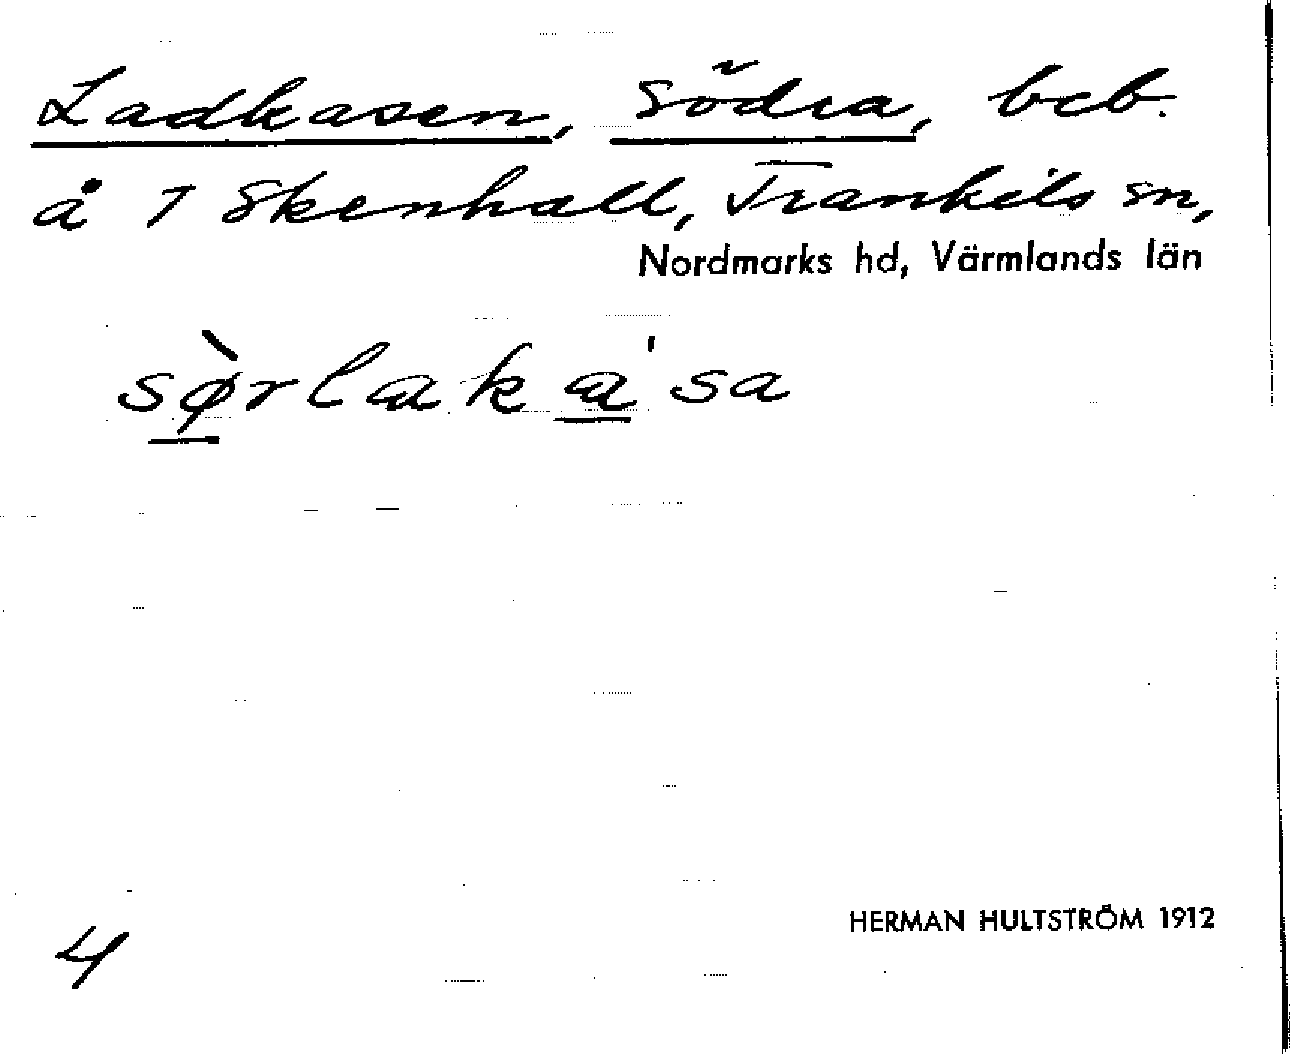 Ladkasen, Södra, beb.
å 1 Skenhall, Trankils sn,
Nordmarks hd, Värmlands län
sø̀rlaka'sa
HERMAN HULTSTRÖM 1912
4